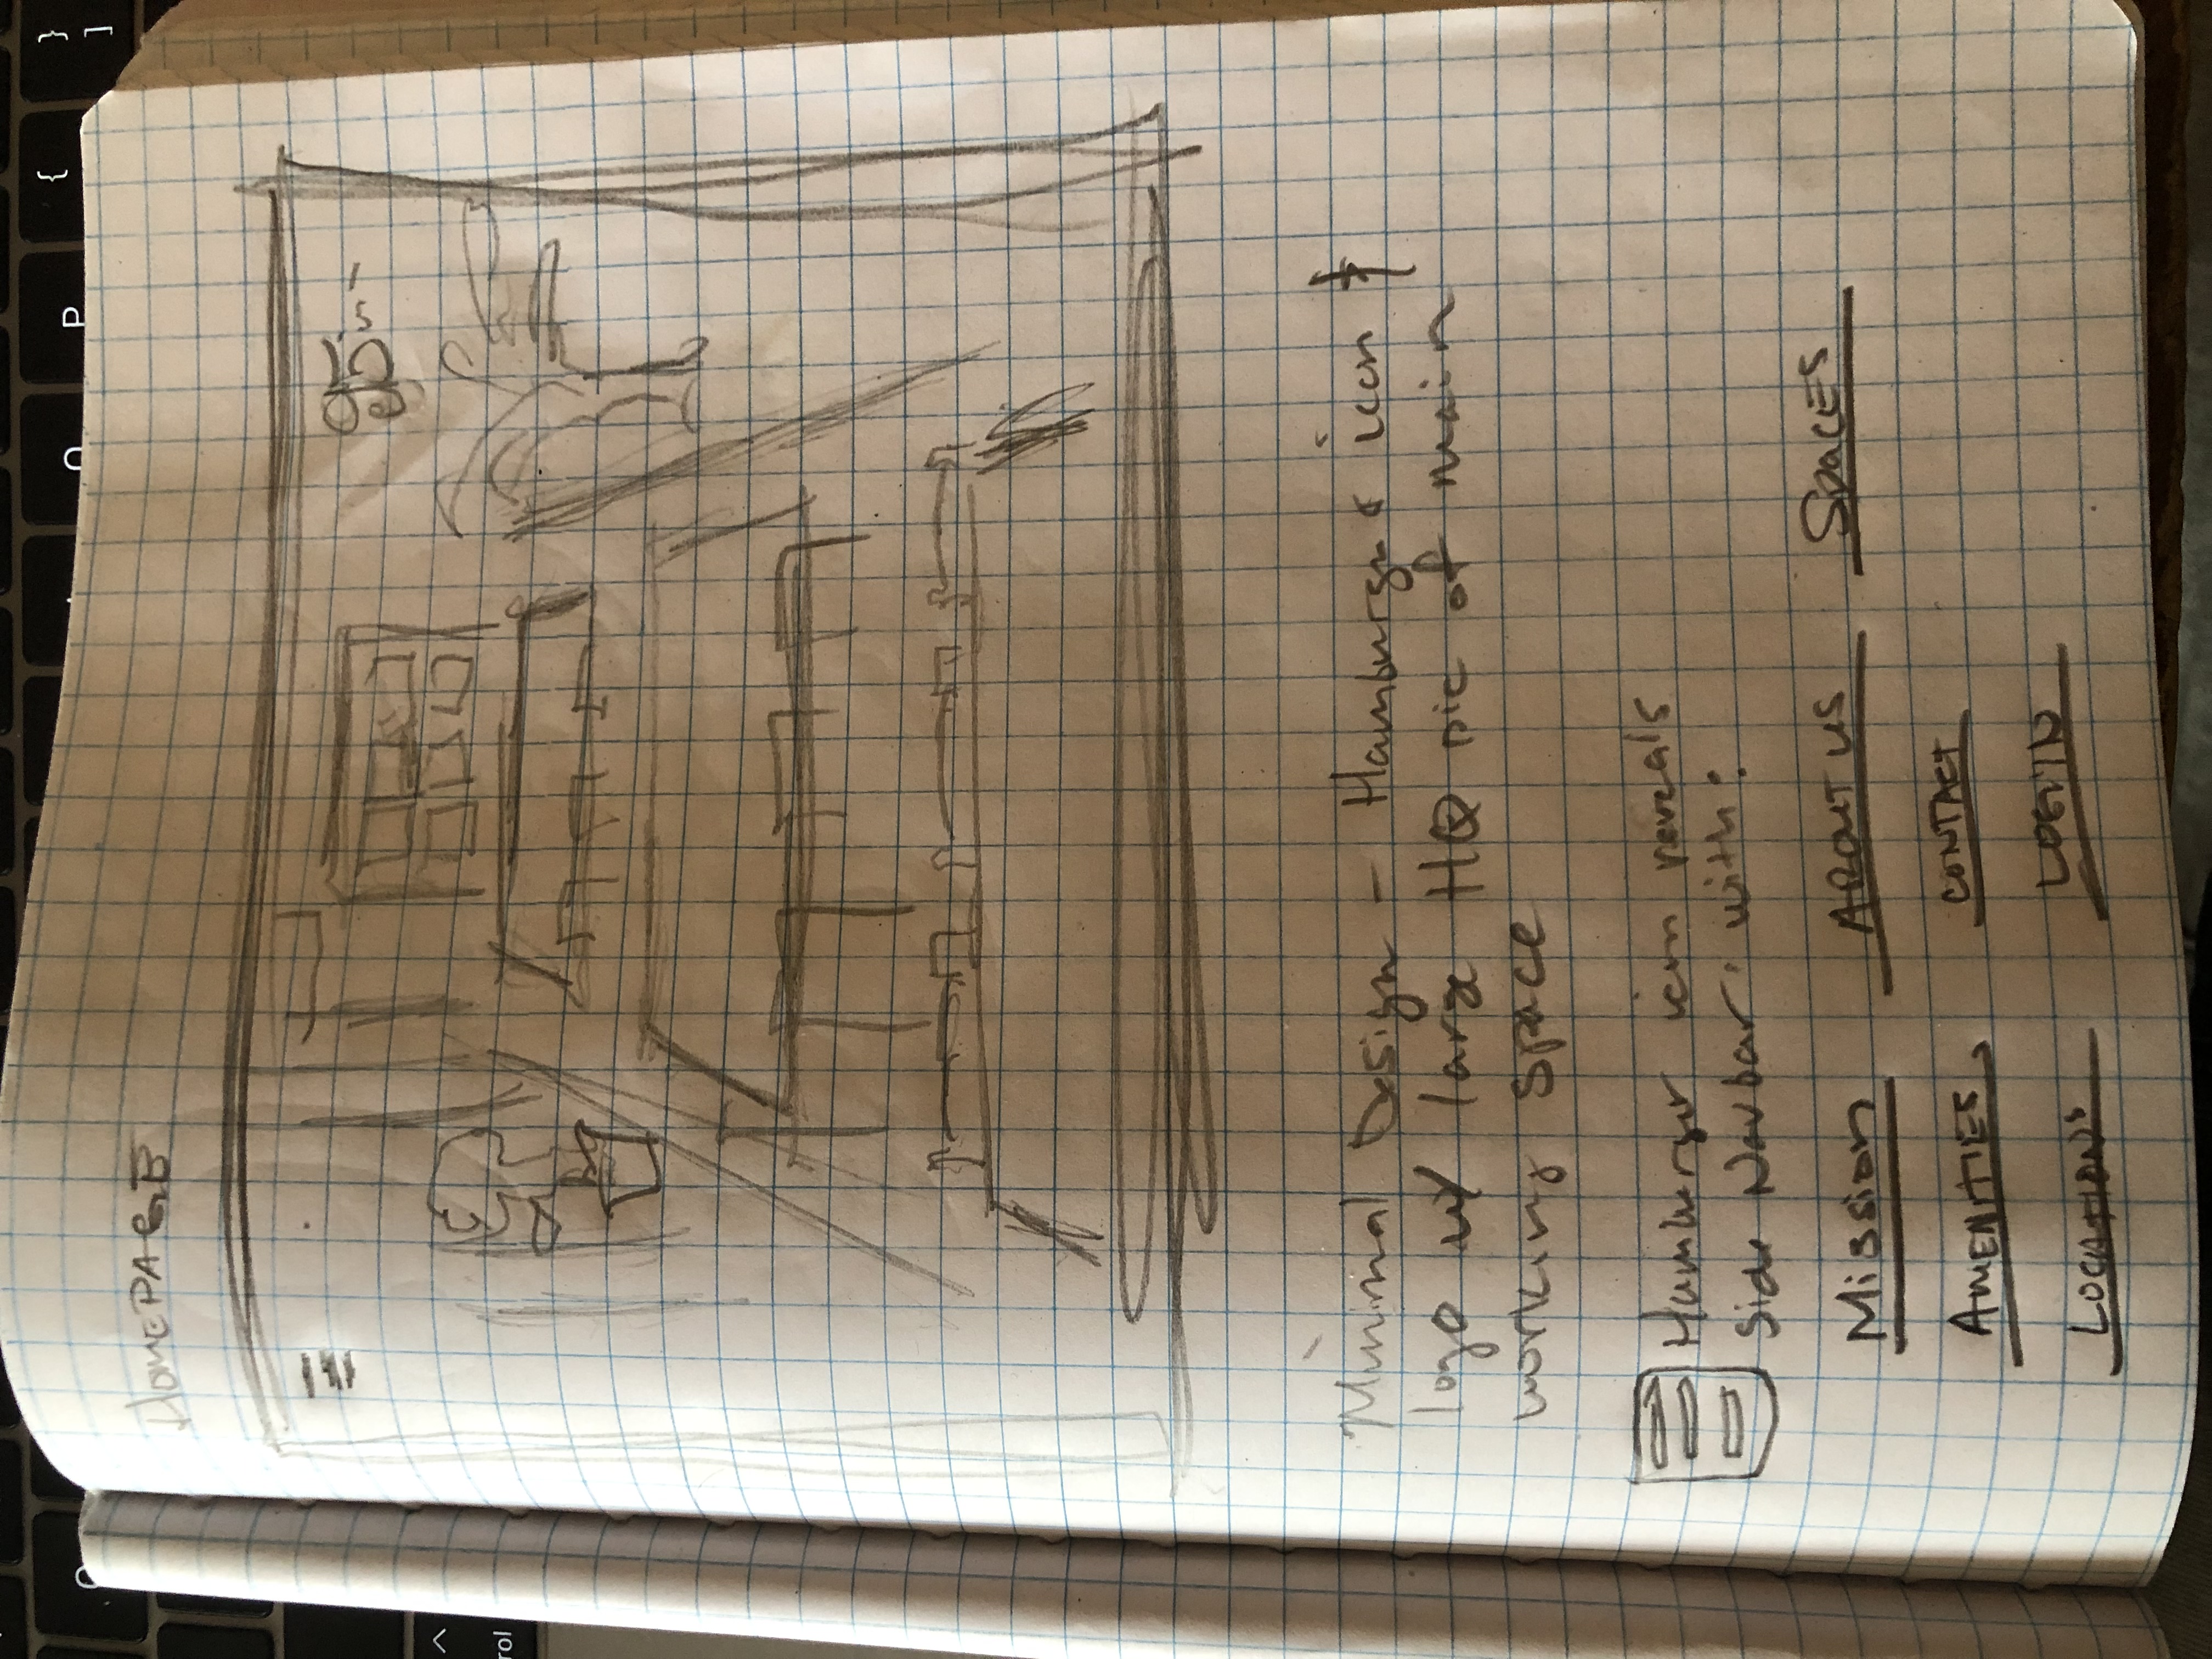 O P { }
]
^
rol
HOMEPAGE
Minimal Design - Hamburger icon &
logo w/ large HQ pic of main
working space
Hamburger icon reveals
side Navbar with:
Mission ABOUT US SPACES
AMENITIES CONTACT
LOCATIONS LOGIN